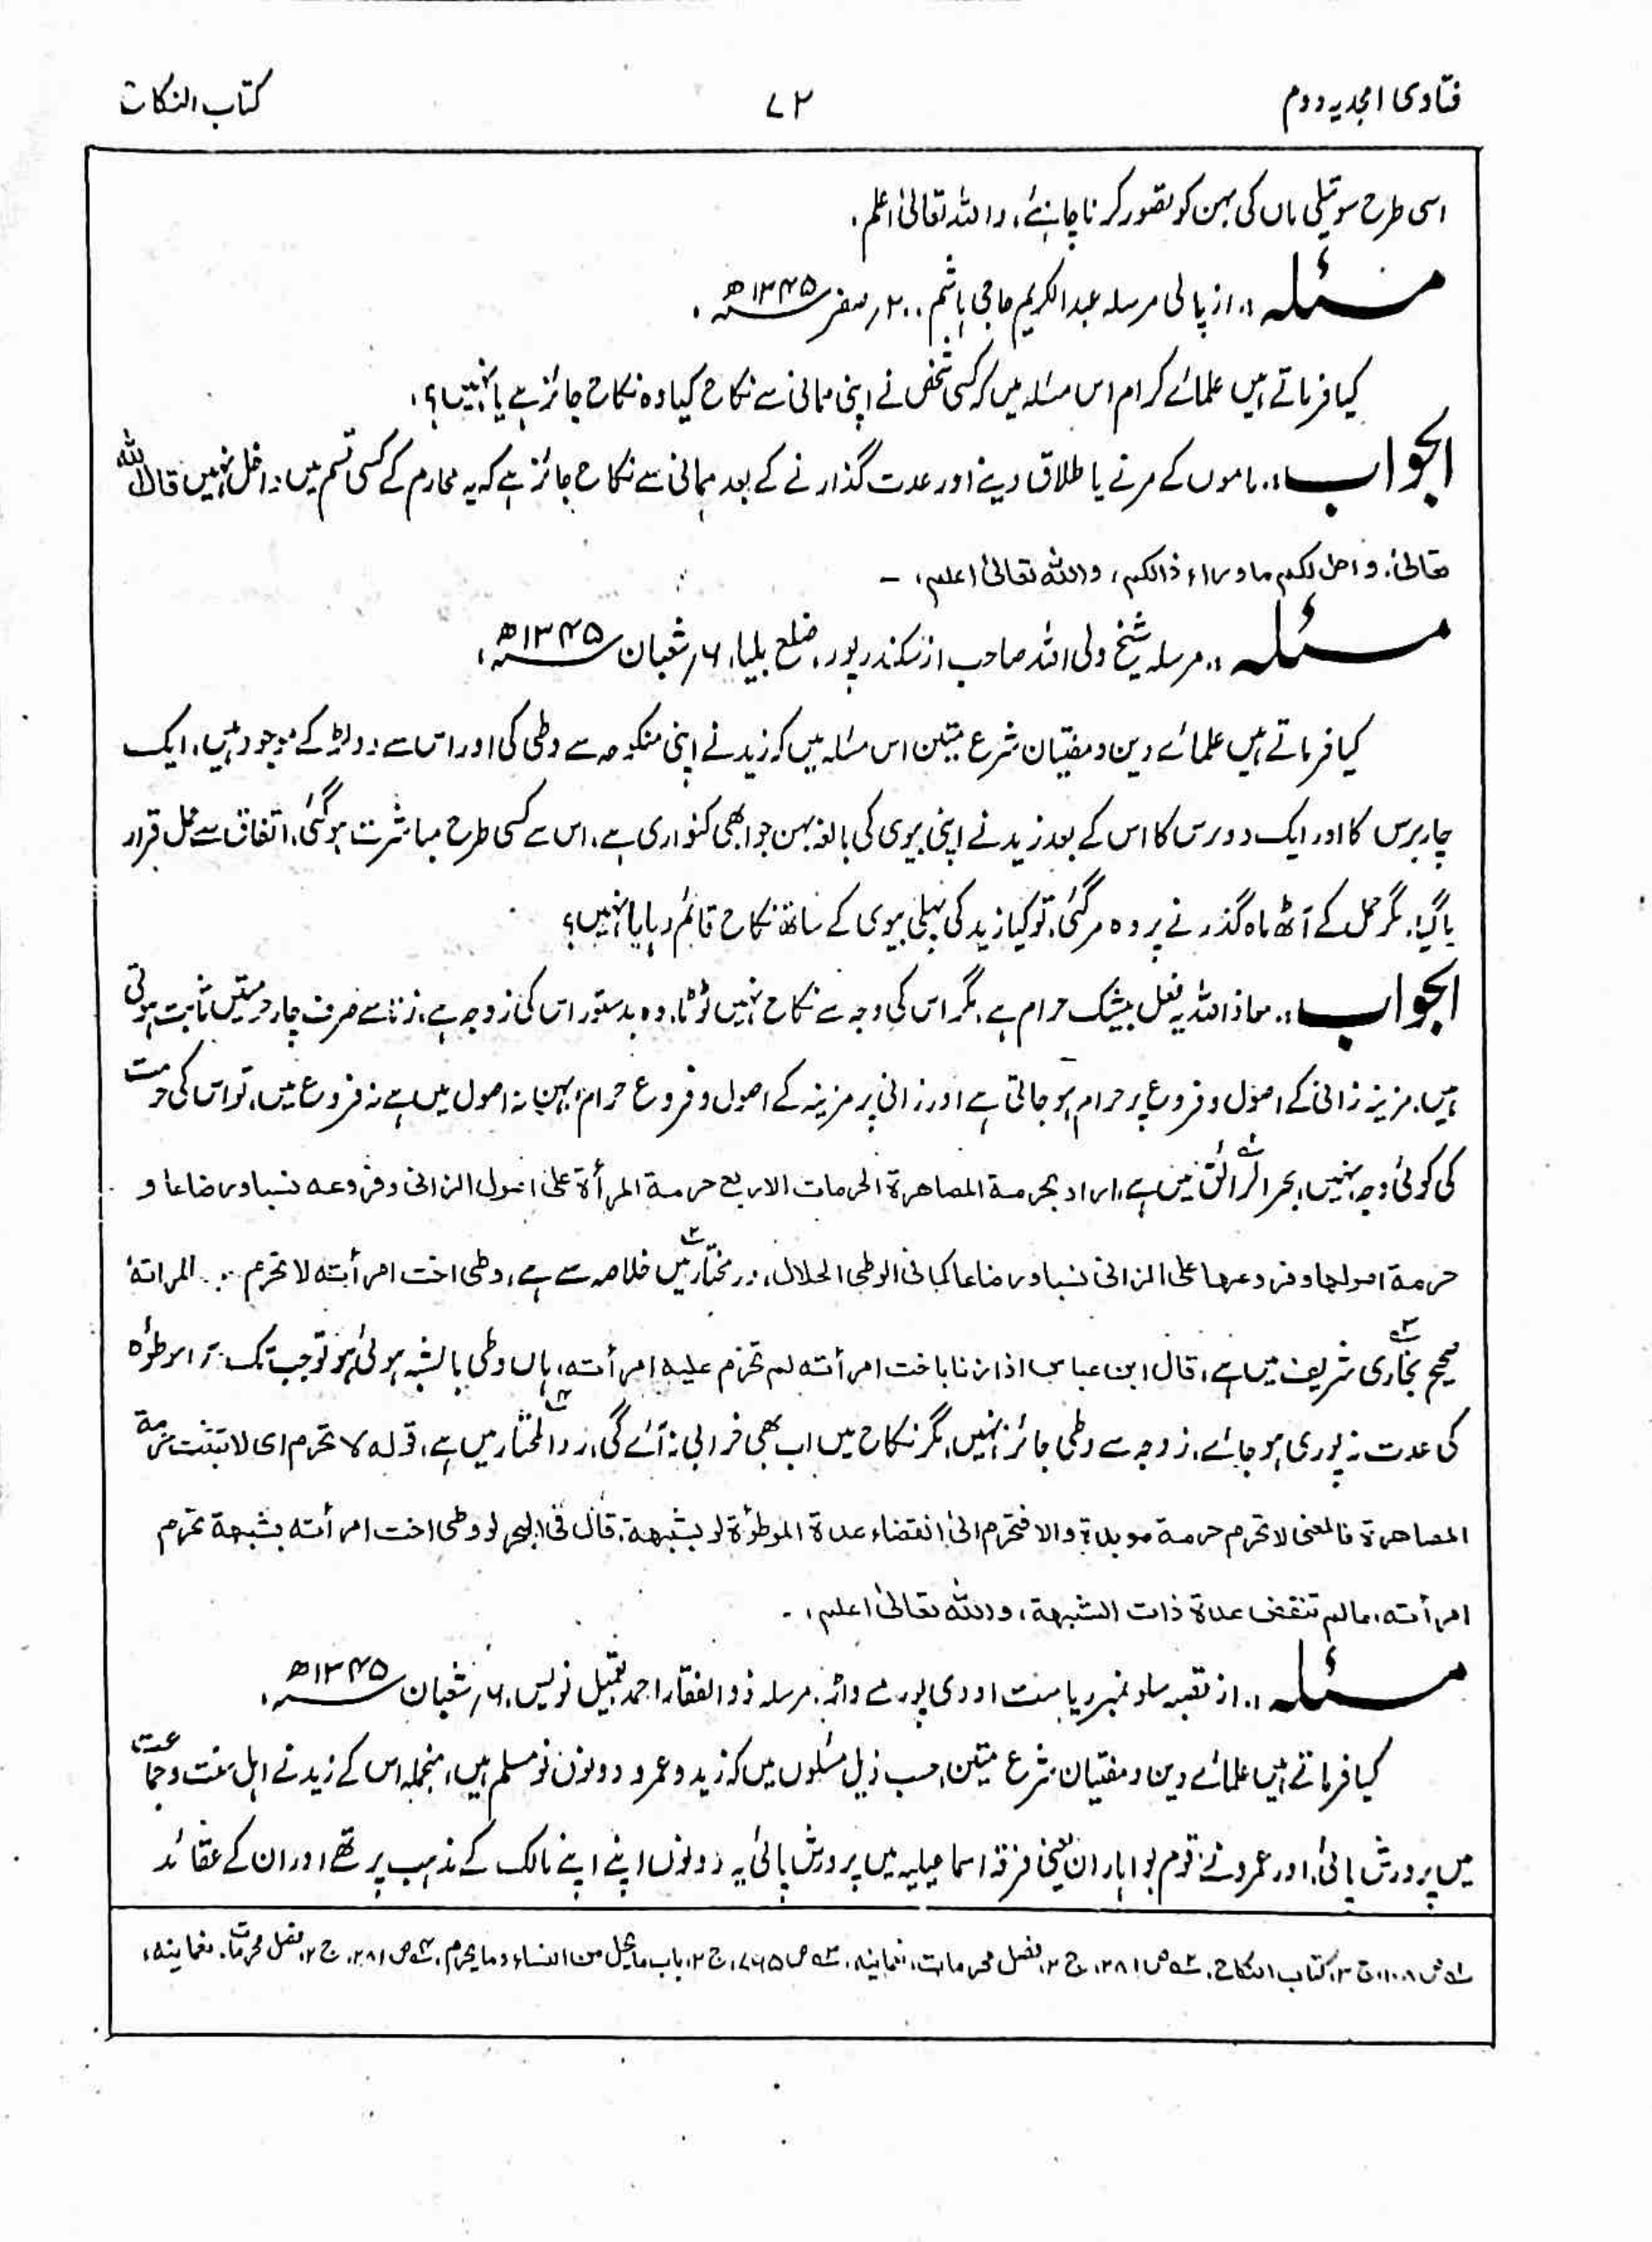 فتاوی امجدیہ دوم
۷۲
کتاب النکاح
اسی طرح سوتیلی ماں کی بہن کو تصور کرنا چاہیئے، واللہ تعالیٰ اعلم۔
مسئلہ:۔ از پالی مرسلہ عبدالکریم حاجی ہاشم ۲۰؍ صفر ۱۳۴۵ھ۔
کیا فرماتے ہیں علمائے کرام اس مسئلہ میں کہ کسی شخص نے اپنی ممانی سے نکاح کیا وہ نکاح جائز ہے یا نہیں؟۔
الجواب:۔ ماموں کے مرنے یا طلاق دینے اور عدت گذارنے کے بعد ممانی سے نکاح جائز ہے کہ یہ محارم کے کسی قسم میں داخل نہیں قال اللہ
تعالیٰ۔ و احل لکم ما وراء ذالکم، واللہ تعالیٰ اعلم، ـ
مسئلہ:۔ مرسلہ شیخ ولی اللہ صاحب از سکندرپور، ضلع بلیا، ۶؍ شعبان ۱۳۴۵ھ،
کیا فرماتے ہیں علمائے دین و مفتیان شرع متین اس مسئلہ میں کہ زید نے اپنی منکوحہ سے وطی کی اور اس سے دو لڑکے موجود ہیں، ایک
چار برس کا اور ایک دو برس کا اس کے بعد زید نے اپنی بیوی کی بالغہ بہن جو ابھی کنواری ہے، اس سے کسی طرح مباشرت ہوگئی، اتفاق سے حمل قرار
پاگیا، مگر حمل کے آٹھ ماہ گذرنے پر وہ مرگئی، تو کیا زید کی پہلی بیوی کے ساتھ نکاح قائم رہا یا نہیں؟
الجواب:۔ معاذ اللہ یہ فعل بیشک حرام ہے، مگر اس کی وجہ سے نکاح نہیں ٹوٹا، وہ بدستور اس کی زوجہ ہے، زنا سے صرف چار حرمتیں ثابت ہوتی
ہیں۔ مزنیہ زانی کے اصول و فروع پر حرام ہو جاتی ہے اور زانی پر مزنیہ کے اصول و فروع حرام، بہن نہ اصول میں ہے نہ فروع میں، تو اس کی حرمت
کی کوئی وجہ نہیں، بحر الرائق میں ہے، اراد بحرمۃ المصاھرۃ الحرمات الاربع حرمۃ المرأۃ علیٰ اصول الزانی وفروعہ نسبا ورضاعا و
حرمۃ اصولھا وفروعھا علی الزانی نسبا ورضاعا کما فی الوطی الحلال، در مختار میں خلاصہ سے ہے، وطی اخت امرأتہ لا تحرم المراتہ
صحیح بخاری شریف میں ہے، قال ابن عباس اذا زنا باخت امرأتہ لم تحرم علیہ امرأتہ، ہاں وطی بالشبہ ہوئی ہو تو جب تک موطؤہ
کی عدت نہ پوری ہوجائے، زوجہ سے وطی جائز نہیں، مگر نکاح میں اب بھی خرابی نہ آئے گی، رد المحتار میں ہے، قولہ لا تحرم ای لا تثبت حرمۃ
المصاھرۃ فالمعنی لا تحرم حرمۃ موبدۃ والا فتحرم الیٰ انقضاء عدۃ الموطؤۃ لو بشبھۃ، قال فی البحر لو وطی اخت امرأتہ بشبھۃ تحرم
امرأتہ، مالم تنقض عدۃ ذات الشبھۃ، واللہ تعالیٰ اعلم، ـ
مسئلہ:۔ از قصبہ ریاست اودی پور مرسلہ ذوالفقار احمد نویس، ۶؍ شعبان ۱۳۴۵ھ،
کیا فرماتے ہیں علمائے دین و مفتیان شرع متین، حسب ذیل مسئلوں میں کہ زید و عمرو دونوں نو مسلم ہیں، منجملہ اس کے زید نے اہل سنت و جماعت
میں پرورش پائی، اور عمرو نے قوم یعنی فرقہ اسماعیلیہ میں پرورش پائی یہ دونوں اپنے اپنے مالک کے مذہب پر تھے اور ان کے عقائد
ج ۳، کتاب النکاح، ص ۲۸۱، ج ۲، فصل محرمات، نعمانیہ، ص ۷۶۵، ج ۲، باب ما یحل من النساء وما یحرم، ص ۲۸۱، ج ۲، فصل محرمات، نعمانیہ،